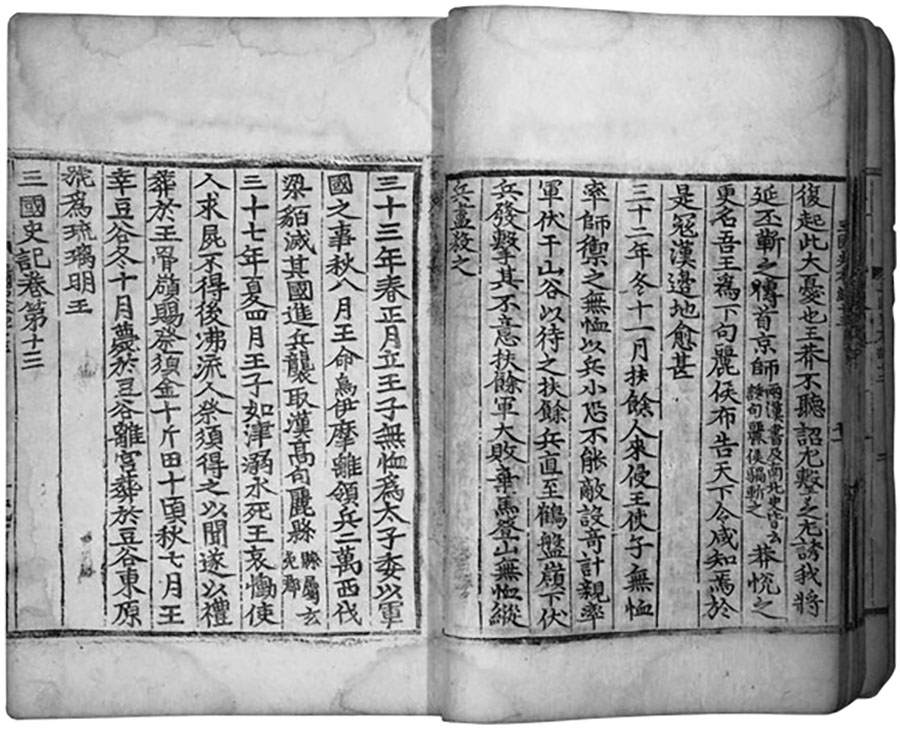 復起此大憂也王莽不聽詔尤擊之尤誘我將
延丕斬之傳首京師兩漢書及南北史皆云誘句麗侯騶斬之莽悅之
更名吾王爲下句麗侯布告天下令咸知焉於
是寇漢邊地愈甚
三十二年冬十一月扶餘人來侵王使子無恤
率師禦之無恤以兵小恐不能敵設奇計親率
軍伏于山谷以待之扶餘兵直至鶴盤嶺下伏
兵發擊其不意扶餘軍大敗棄馬登山無恤縱
兵盡殺之
三十三年春正月立王子無恤爲太子委以軍
國之事秋八月王命烏伊摩離領兵二萬西伐
梁貊滅其國進兵襲取漢高句麗縣縣屬玄菟郡
三十七年夏四月王子如津溺水死王哀慟使
人求屍不得後沸流人祭須得之以聞遂以禮
葬於王骨嶺賜祭須金十斤田十頃秋七月王
幸豆谷冬十月薨於豆谷離宮葬於豆谷東原
號爲琉璃明王
三國史記卷第十三